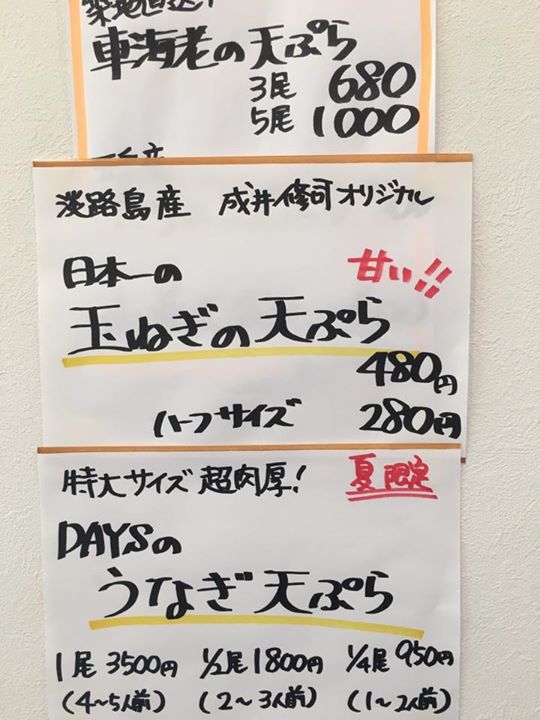 築地直送!
車海老の天ぷら
3尾 680
5尾 1000
淡路島産 成井修司オリジナル
日本一の 甘い!!
玉ねぎの天ぷら
480円
ハーフサイズ 280円
特大サイズ 超肉厚! 夏限定
DAYSの
うなぎ天ぷら
1尾 3500円 1/2尾 1800円 1/4尾 950円
(4~5人前) (2~3人前) (1~2人前)